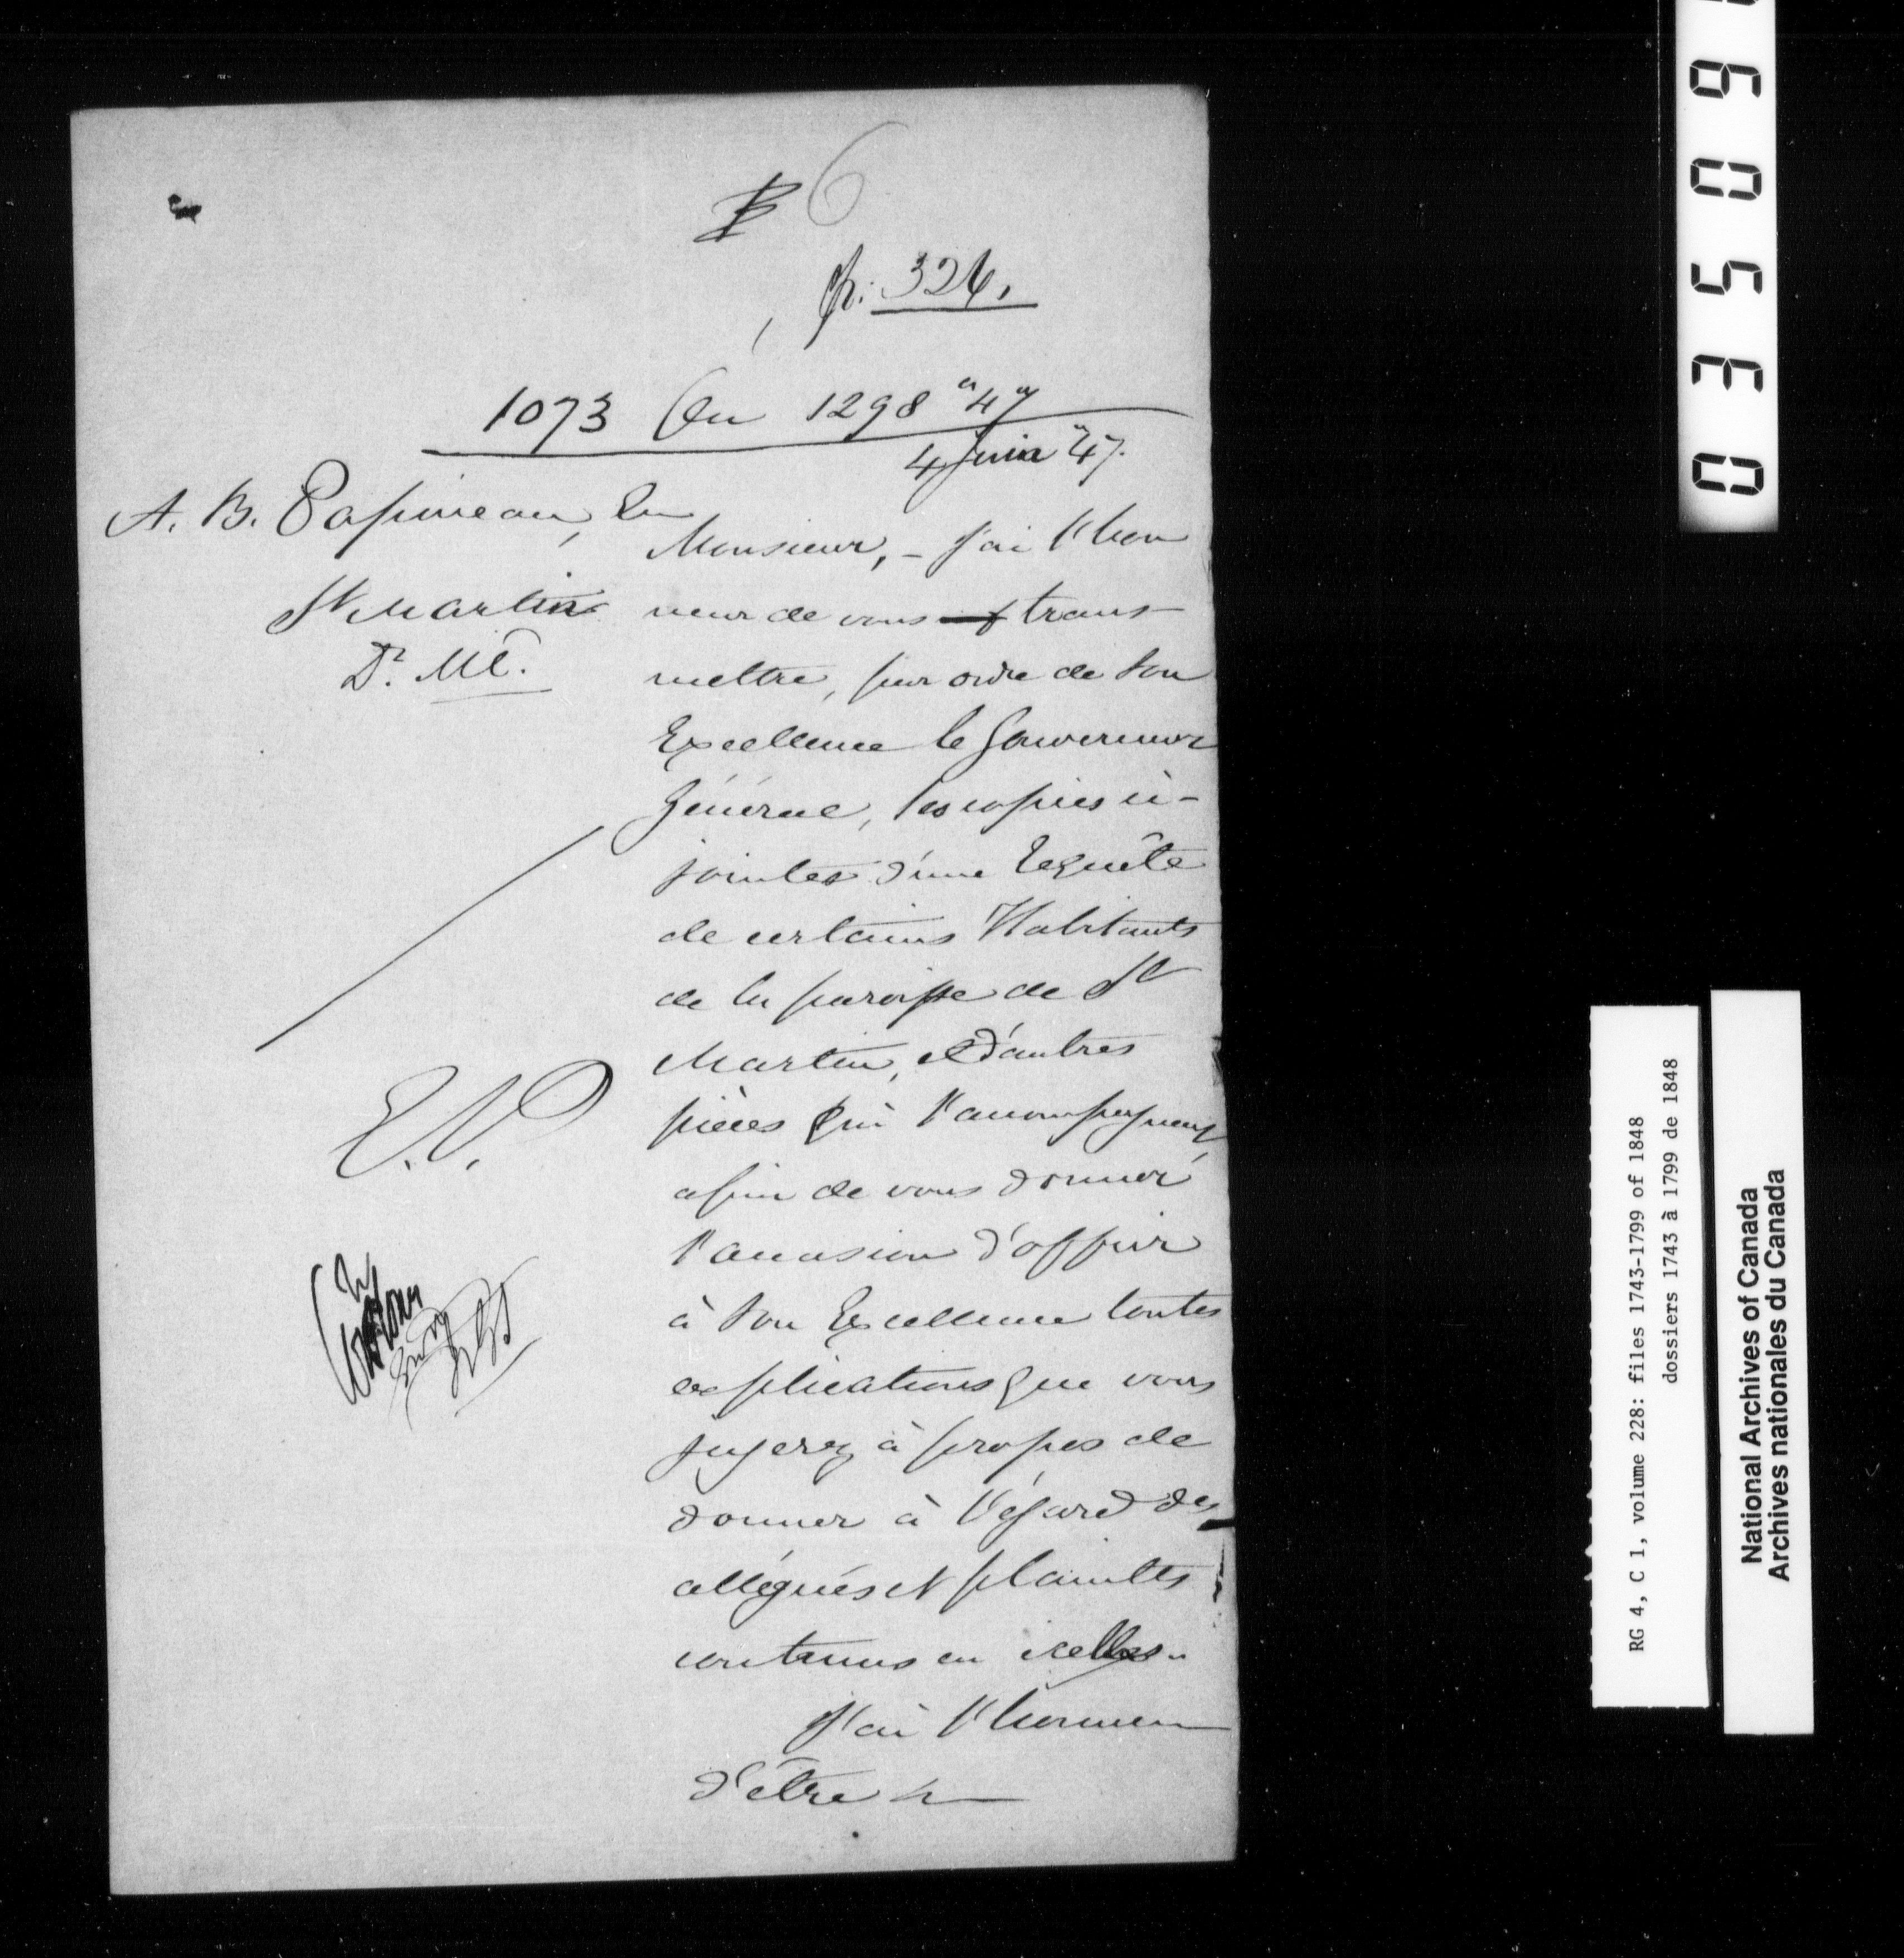 6
p. 326.
1073 On 1298 a 47
4 Juin 47.
A. B. Papineau, Ecr
St Martin
Dt. Ml.
Monsieur, – J'ai l'hon
neur de vous trans-
mettre, par ordre de Son
Excellence le Gouverneur
Général, les copies ci-
jointes d'une Requête
de certains Habitants
de la paroisse de St
Martin, et d'autres
pièces qui l'accompagnent,
afin de vous donner
l'occasion d'offrir
à Son Excellence toutes
explications que vous
jugerez à propos de
donner à l'égard des
allégués et plaintes
contenus en icelles.
J'ai l'honneur
d'être
E.P.
0 3 5 0 9
RG 4, C 1, volume 228: files 1743-1799 of 1848
dossiers 1743 à 1799 de 1848
National Archives of Canada
Archives nationales du Canada